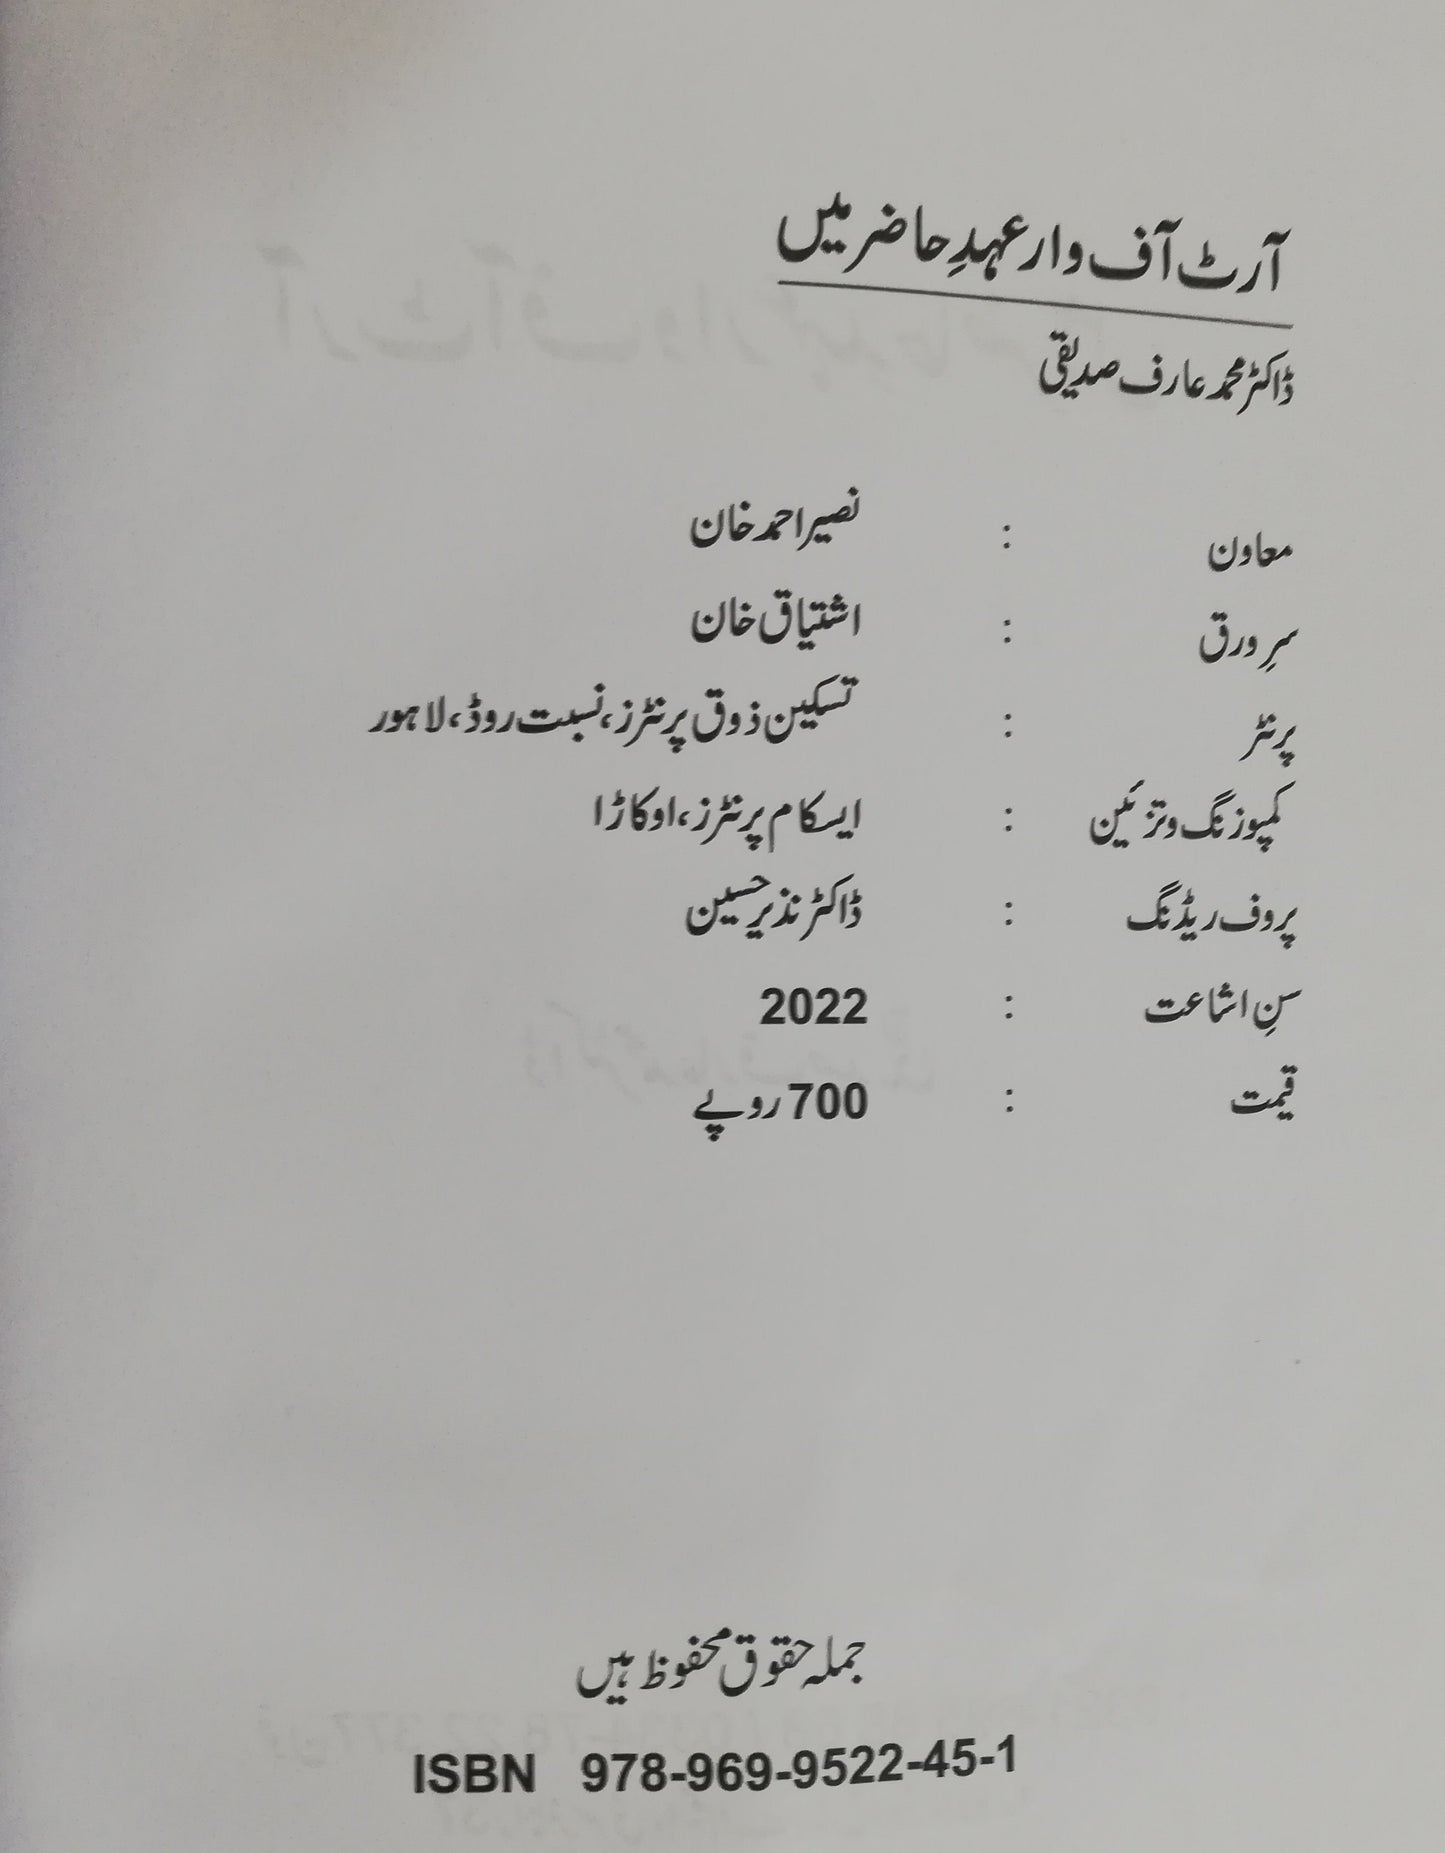 آرٹ آف وار عہدِ حاضر میں
ڈاکٹر محمد عارف صدیقی
معاون : نصیر احمد خان
سرِ ورق : اشتیاق خان
پرنٹر : تسکین ذوق پرنٹرز، نسبت روڈ، لاہور
کمپوزنگ و تزئین : ایسکام پرنٹرز، اوکاڑا
پروف ریڈنگ : ڈاکٹر نذیر حسین
سنِ اشاعت : 2022
قیمت : 700 روپے
جملہ حقوق محفوظ ہیں
ISBN 978-969-9522-45-1